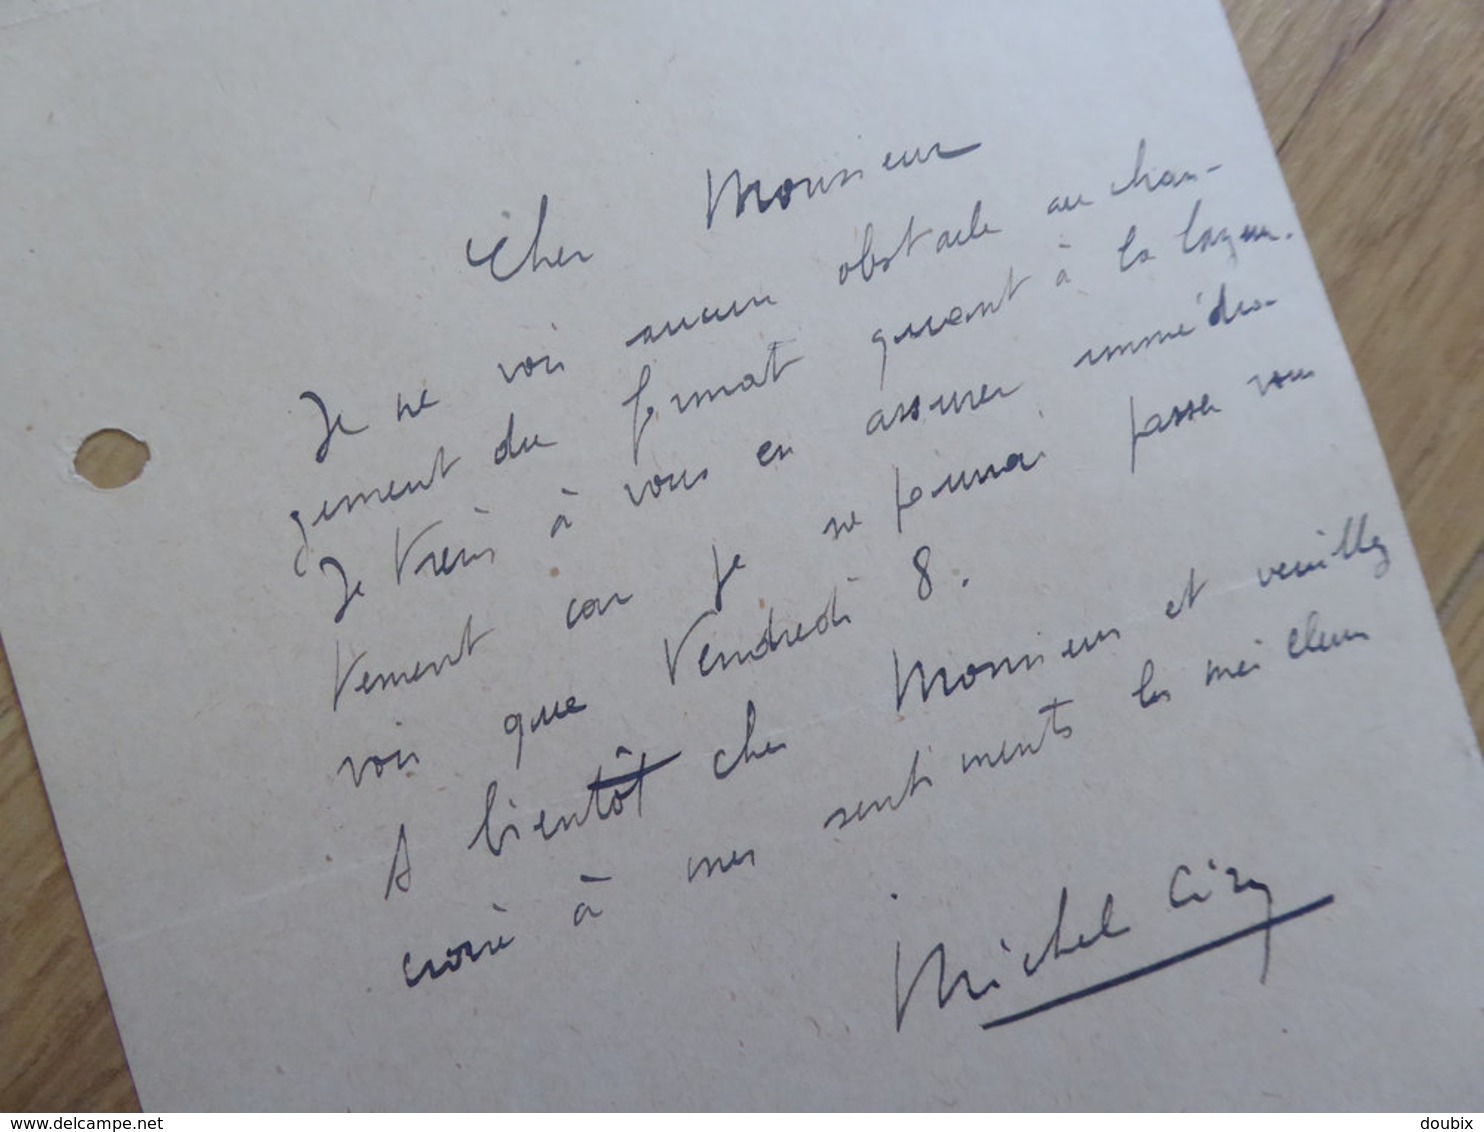 Cher Monsieur
Je ne vois aucun obstacle au chan-
gement du format quant à la largeur.
Je tiens à vous en assurer immédia-
tement car je ne pourrai passer vous
voir que Vendredi 8.
A bientôt cher Monsieur et veuillez
croire à mes sentiments les meilleurs
Michel Ciry
delcampe.net
doubix